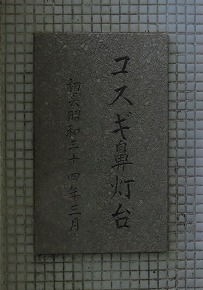 コスギ鼻灯台
初点昭和三十四年三月